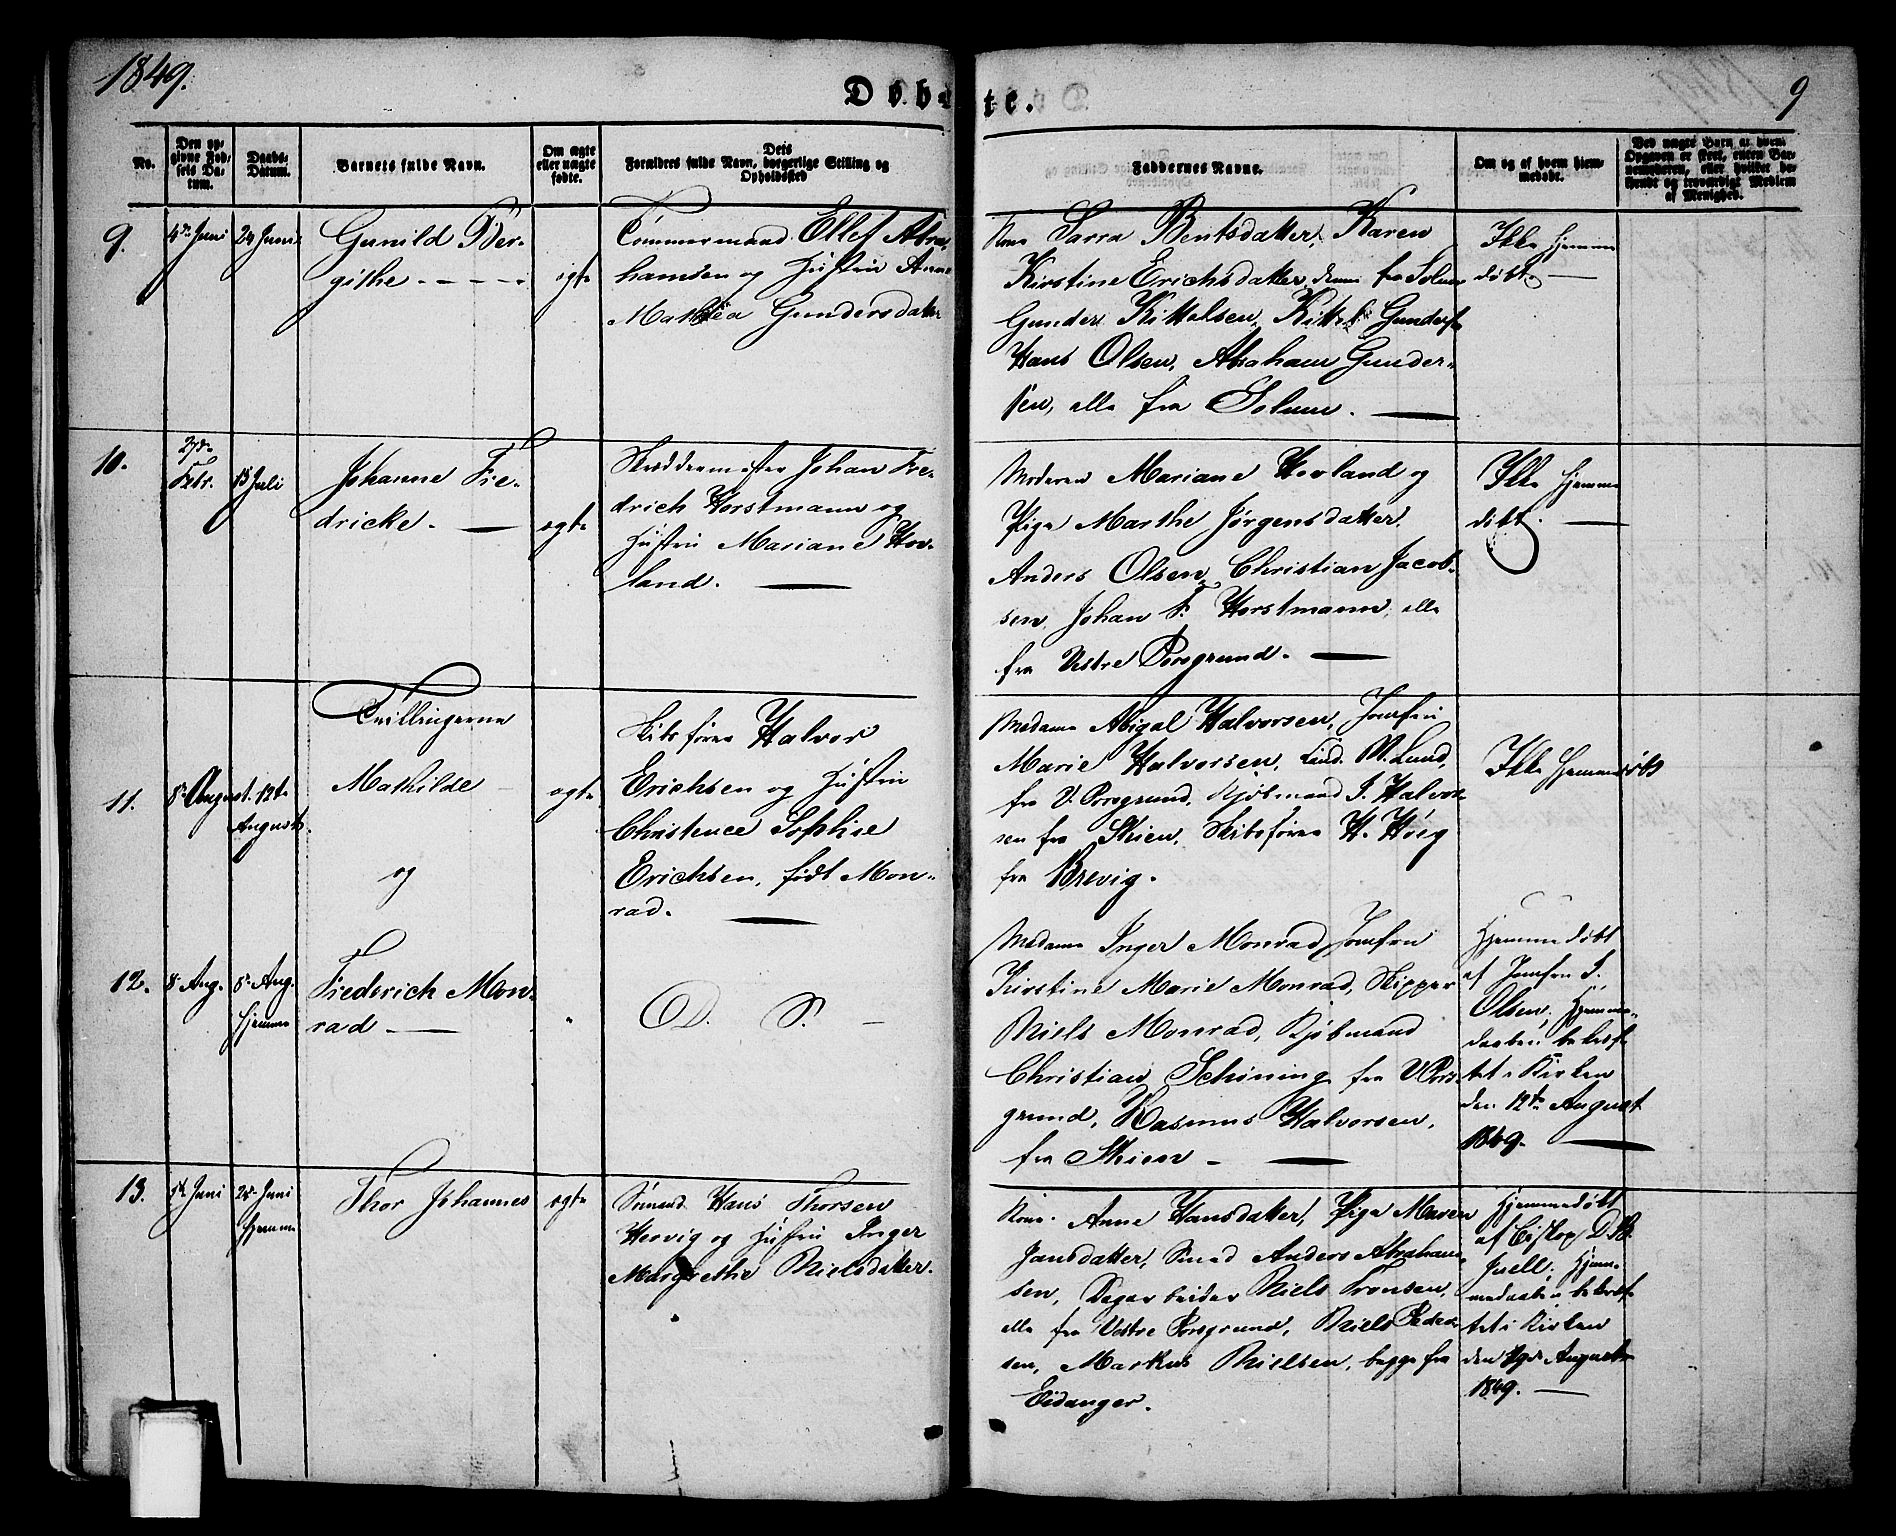 1849.
9
Døbte.
No.
Den opgivne Fødsels Datum.
Daabs-Datum.
Barnets fulde Navn.
Om ægte eller uægte fødte.
Dets Forældres fulde Navn, borgerlige Stilling og Opholdssted
Faddernes Navne.
Om og af hvem hjemmedøbt.
9.
4de Juni
24 Juni
Gunild Ber-
githe - - - -
ægte
Tømmermand Ellef Abra-
hamsen og Hustru Anne
Mathea Gundersdatter
Kone Sarra Bentsdatter, Karen
Kirstine Erichsdatter, denne fra Solum
Gunder Kittelsen, Kittel Gunders.
Hans Olsen, Abraham Gunder-
sen, alle fra Solum. —
Ikke hjemme
døbt. —
10.
27de
Febr.
15 Juli
Johanne Fre-
dricke. —
ægte
Skræddermester Johan Fre-
drich Horstmann og
Hustru Mariane Hov-
land. —
Moderen Mariane Hovland og
Pige Marthe Jørgensdatter,
Anders Olsen, Christian Jacob-
sen, Johan F. Horstmann, alle
fra Vestre Porsgrund. —
Ikke hjemme
døbt. —
11.
8de August.
12te
August.
Tvillingerne
Mathilde
og
ægte
Skibsfører Halvor
Erichsen og Hustru
Christence Sophie
Erichsen, født Mon-
rad. —
Madame Abigal Halvorsen, Jomfru
Marie Halvorsen, M. Lund,
fra V. Porsgrund, Kjøbmand J. Halvor-
sen fra Skien, Skibsfører H. Höeg
fra Brevig.
Ikke hjemmedøbt
12.
8de Aug.
8de Aug.
hjemme
Frederich Mon-
rad —
"
D. S. —
Madame Inger Monrad, Jomfru
Kirstine Marie Monrad, Skipper
Niels Monrad, Kjøbmand
Christian Schöning fra V Pors-
grund, Rasmus Halvorsen,
fra Skien — —
Hjemmedøbt
af Jomfru J.
Olsen, Hjemme-
daaben bekræf-
tet i Kirken
den 12te August
1849. —
13.
Juni
25de Juni
hjemme
Thor Johannes
ægte
Sømand Hans Thorsen
Hervig og Hustru Inger
Margrethe Nielsdatter.
Kone Anne Hansdatter, Pige Maren
Jansdatter, Smed Anders Abraham-
sen, Dagarbeider Niels Tronsen,
alle fra Vestre Porsgrund, Niels Peder-
sen, Markus Nielsen, begge fra
Eidanger.
Hjemmedøbt
af Biskop
Juell. Hjem-
medaaben bekræf-
tet i Kirken
den August
1849. —